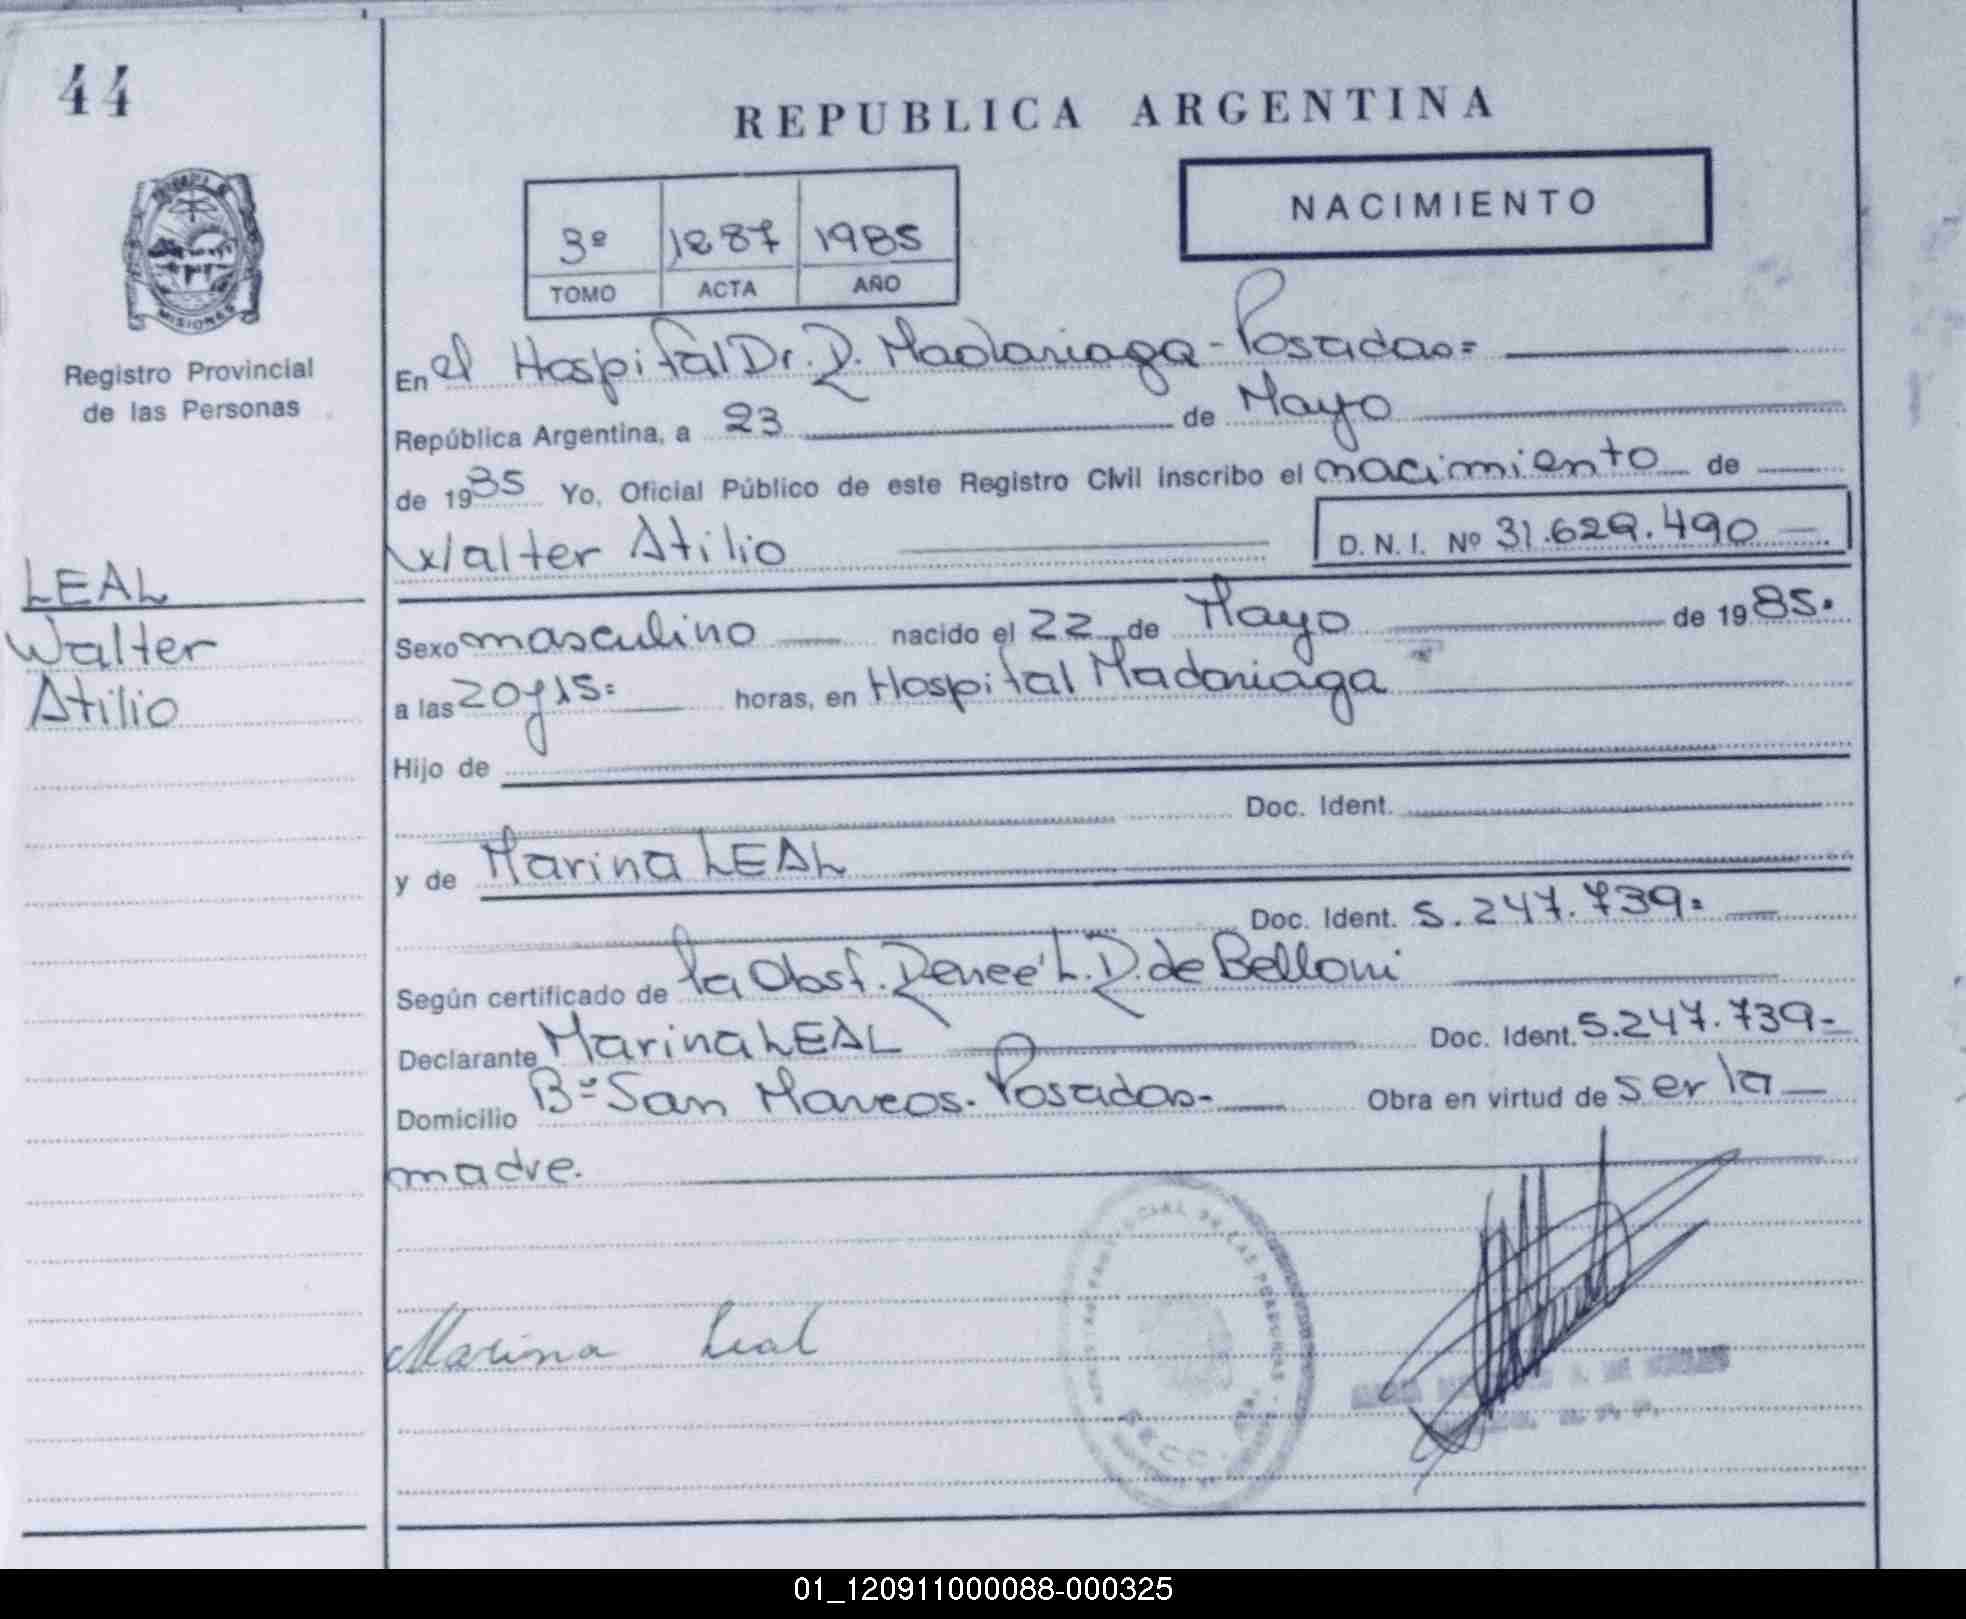 44
REPUBLICA ARGENTINA
NACIMIENTO
3º 1887 1985
TOMO ACTA AÑO
MISIONES
Registro Provincial
de las Personas
LEAL
Walter
Atilio
En el Hospital Dr. R. Madariaga - Posadas=
República Argentina, a 23 de Mayo
de 1985 Yo, Oficial Público de este Registro Civil inscribo el nacimiento de
Walter Atilio
D.N.I. Nº 31.629.490
Sexo masculino nacido el 22 de Mayo de 1985.
a las 20y15= horas, en Hospital Madariaga
Hijo de
Doc. Ident.
y de Marina LEAL
Doc. Ident. 5.247.739=
Según certificado de la Obst. Reneé L. R. de Belloni
Declarante Marina LEAL Doc. Ident. 5.247.739-
Domicilio Bº San Marcos. Posadas- Obra en virtud de ser la
madre.
Marina Leal
01_120911000088-000325